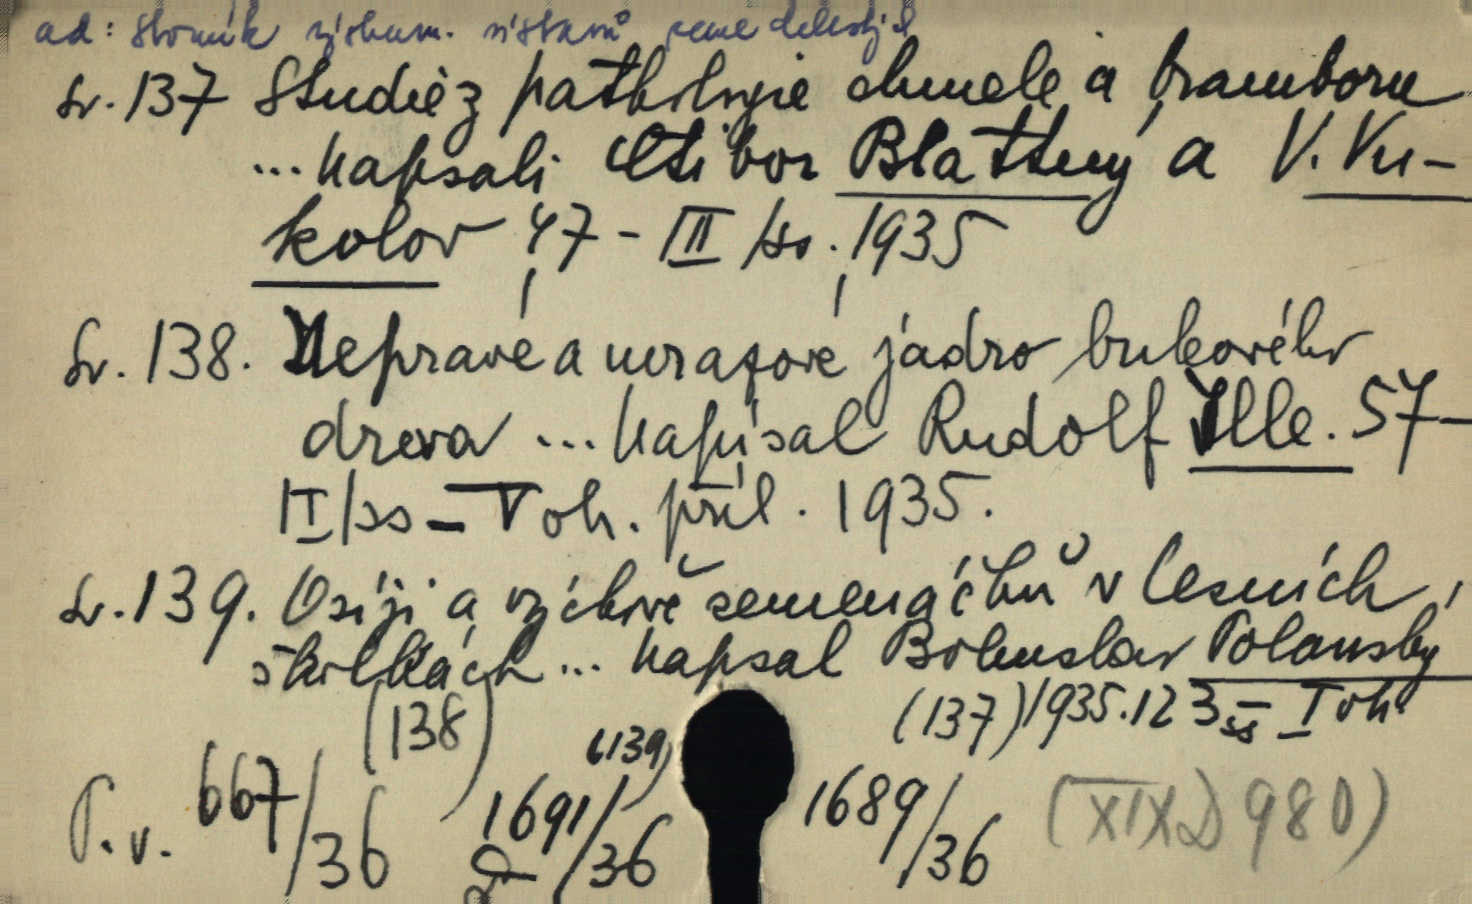 ad: Sborník výzkum. ústavů zemědělských
Sv. 137 Studie z pathologie chmele a bramboru
... napsali Ctibor Blattný a V. Vu-
kolov 47 - III /ss. 1935
Sv. 138. Nepravé a mrazové jádro bukového
dřeva ... napísal Rudolf Ille. 57 -
II/ss - V oh. příl. 1935.
Sv. 139. Osíji a výchově semenáčků v lesních
školkách ... napsal Bohuslav Polanský
(138) (139) (137) 1935. 123 ss - I oh
P. v. 667/36 1691/36 1689/36 (XIX D 980)
D